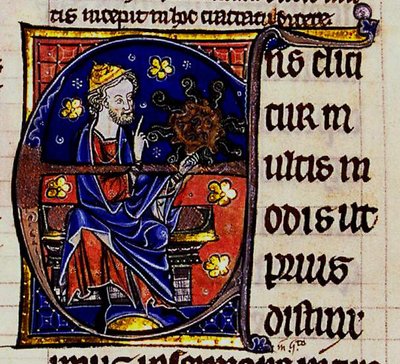 tis incepit in hoc tractatu dicere
Ens dici
tur m
ultis m
odis ut
prius
distinx